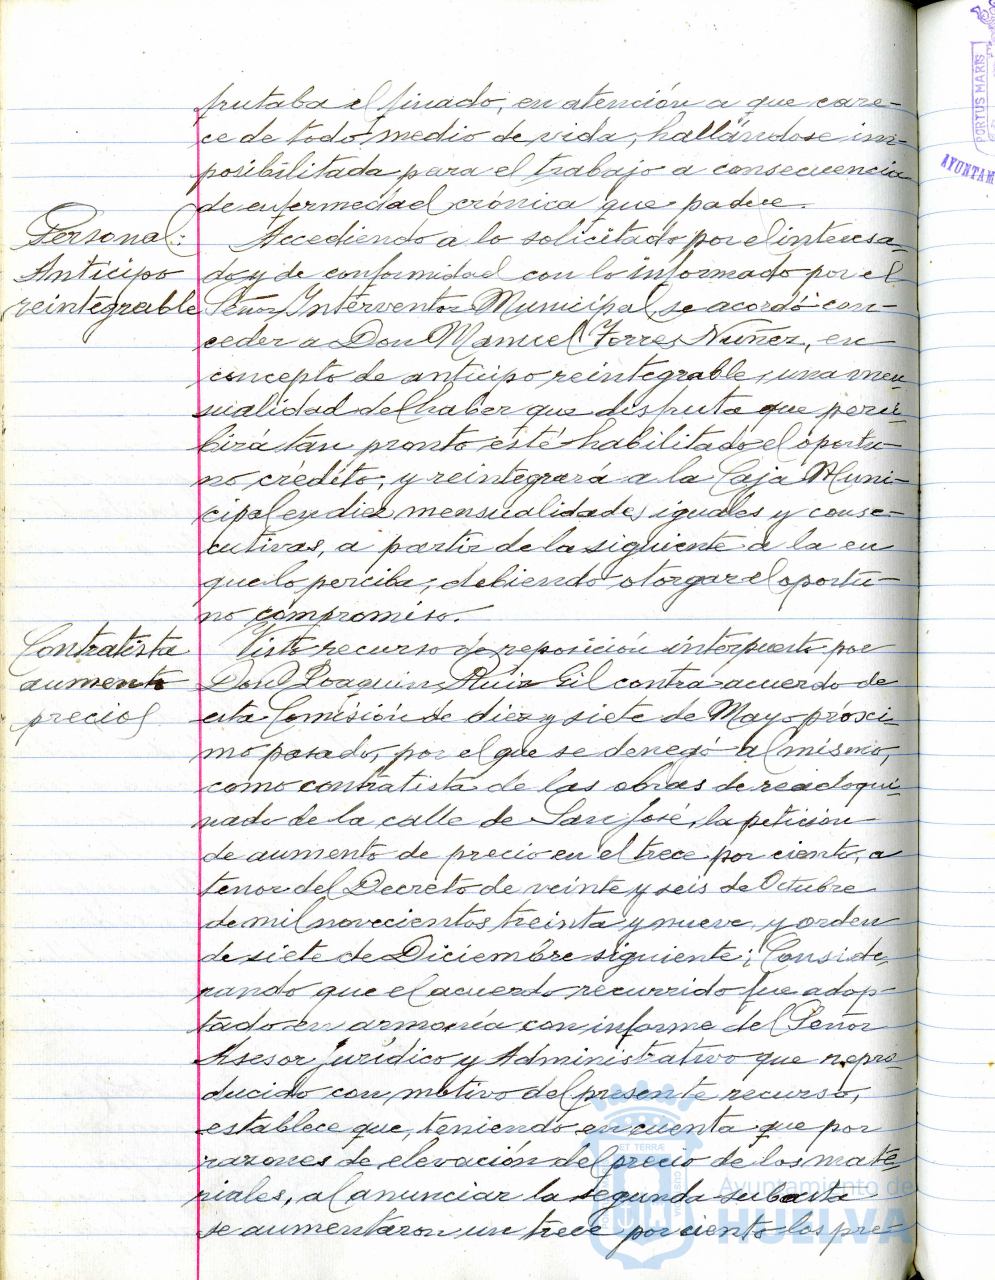 frutaba el finado, en atención a que care-
ce de todo medio de vida, hallándose im-
posibilitada para el trabajo a consecuencia
de enfermedad crónica que padece.
Personal:
Anticipo
reintegrable
Accediendo a lo solicitado por el interesa-
do y de conformidad con lo informado por el
Señor Interventor Municipal, se acordó con-
ceder a Don Manuel Torres Nuñez, en
concepto de anticipo reintegrable, una men-
sualidad del haber que disfruta que perci-
birá tan pronto esté habilitado el oportu-
no crédito, y reintegrará a la Caja Muni-
cipal en diez mensualidades iguales y conse-
cutivas, a partir de la siguiente a la en
que lo perciba, debiendo otorgar el oportu-
no compromiso.
Contratista
aumento
precios
Visto recurso de reposición interpuesto por
Don Joaquin Ruiz Gil contra acuerdo de
esta Comisión de diez y siete de Mayo próxi-
mo pasado, por el que se denegó al mismo,
como contratista de las obras de readoqui-
nado de la calle de San José, la petición
de aumento de precio en el trece por ciento, a
tenor del Decreto de veinte y seis de Octubre
de mil novecientos treinta y nueve y orden
de siete de Diciembre siguiente; Conside-
rando que el acuerdo recurrido fue adop-
tado en armonía con informe del Señor
Asesor Jurídico y Administrativo que repro-
ducido con motivo del presente recurso,
establece que, teniendo en cuenta que por
razones de elevación del precio de los mate-
riales, al anunciar la segunda subasta
se aumentaron un trece por ciento los pre-
PORTUS MARIS
AYUNTAM
ET TERRÆ
Ayuntamiento de
HUELVA